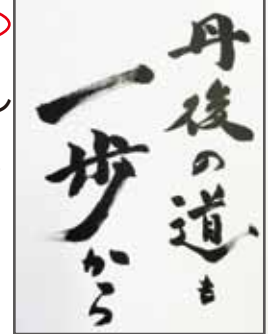 丹後の道も
一歩から